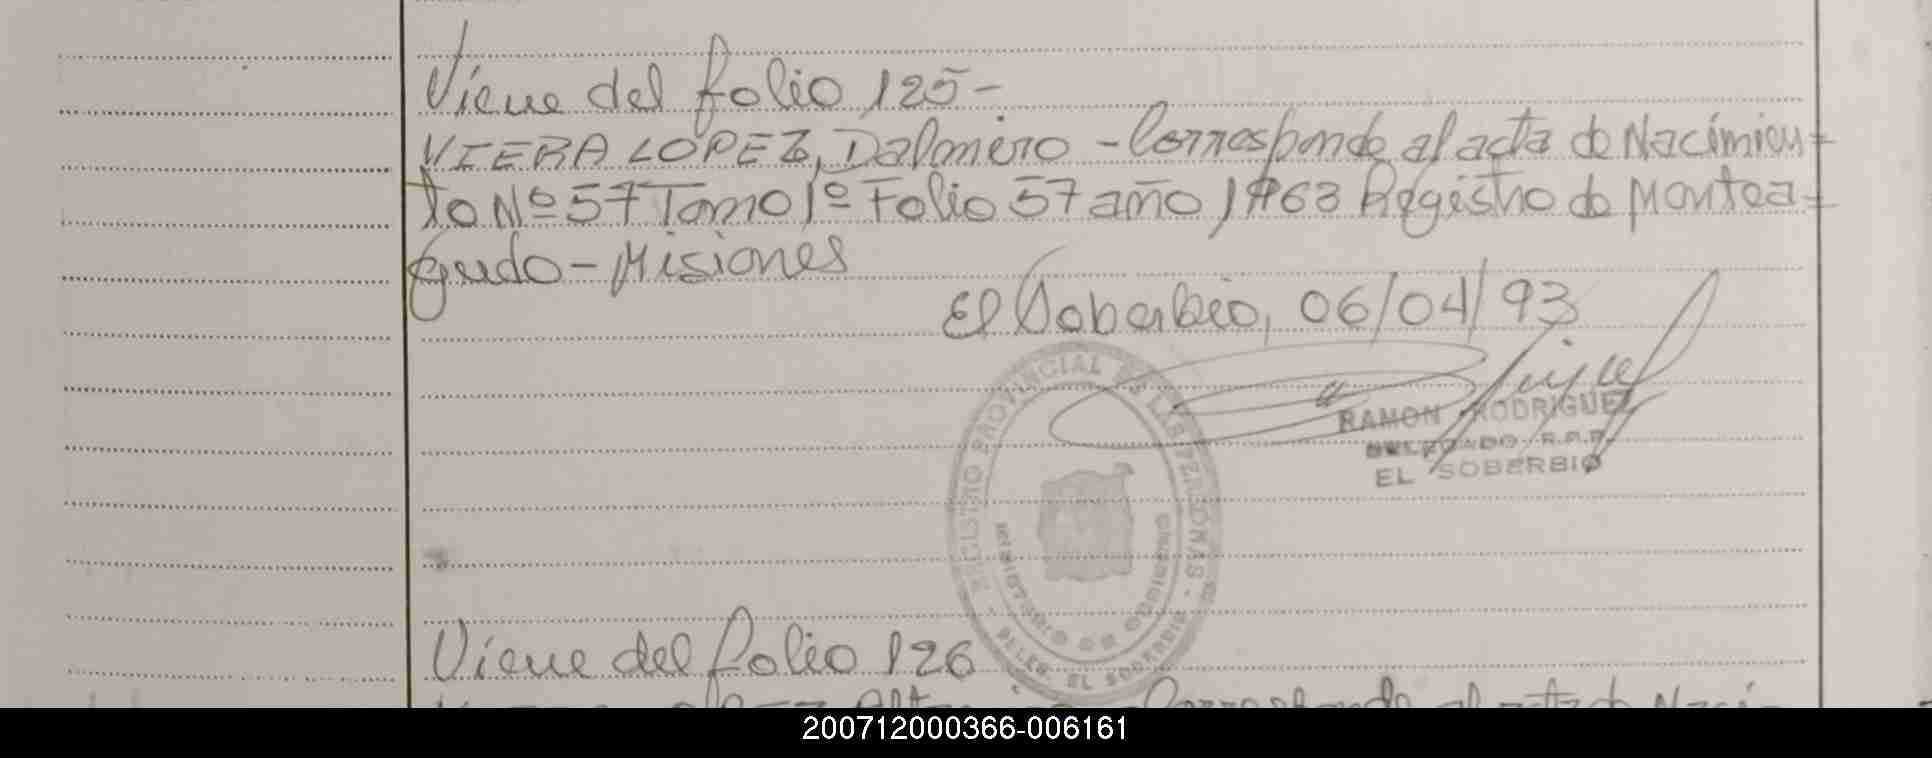 Viene del folio 125-
VIERA LOPEZ, Dalmiro - Corresponde al acta de Nacimien=
to Nº 57 Tomo 1º Folio 57 año 1963 Registro de Montea=
gudo - Misiones
El Soberbio, 06/04/93
REGISTRO PROVINCIAL DE LAS PERSONAS
MINISTERIO DE GOBIERNO
DELEG. EL SOBERBIO
RAMON RODRIGUEZ
DELEGADO R.P.P.
EL SOBERBIO
Viene del folio 126
Corresponde al acta de Naci
200712000366-006161